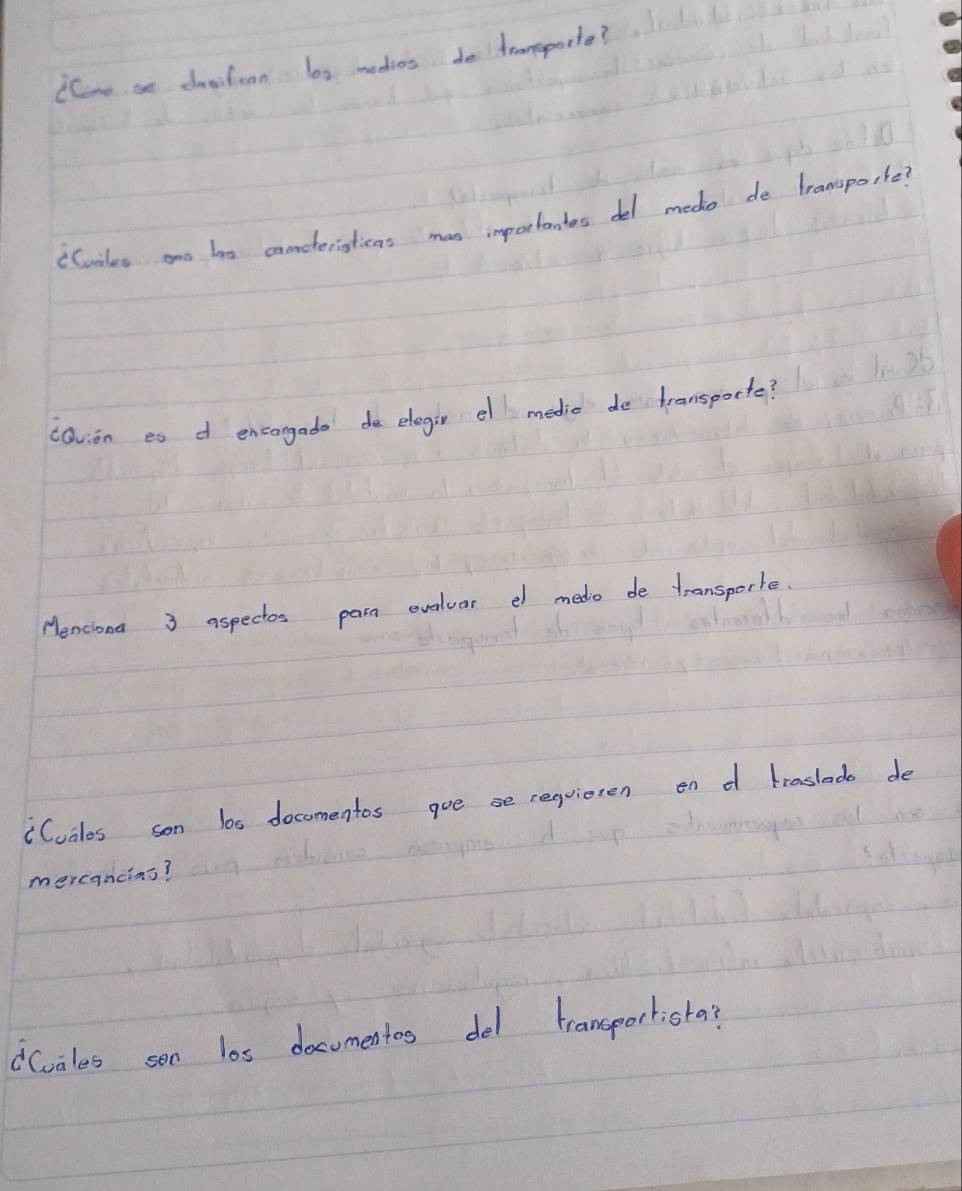 ¿Como se clasifican los medios de transporte?
¿Cuáles son las caracteristicas mas importantes del medio de transporte?
¿Quién es el encargado de elegir el medio de transporte?
Menciona 3 aspectos para evaluar el medio de transporte.
¿Cuáles son los documentos que se requieren en el traslado de
mercancias?
¿Cuáles son los documentos del transportista?